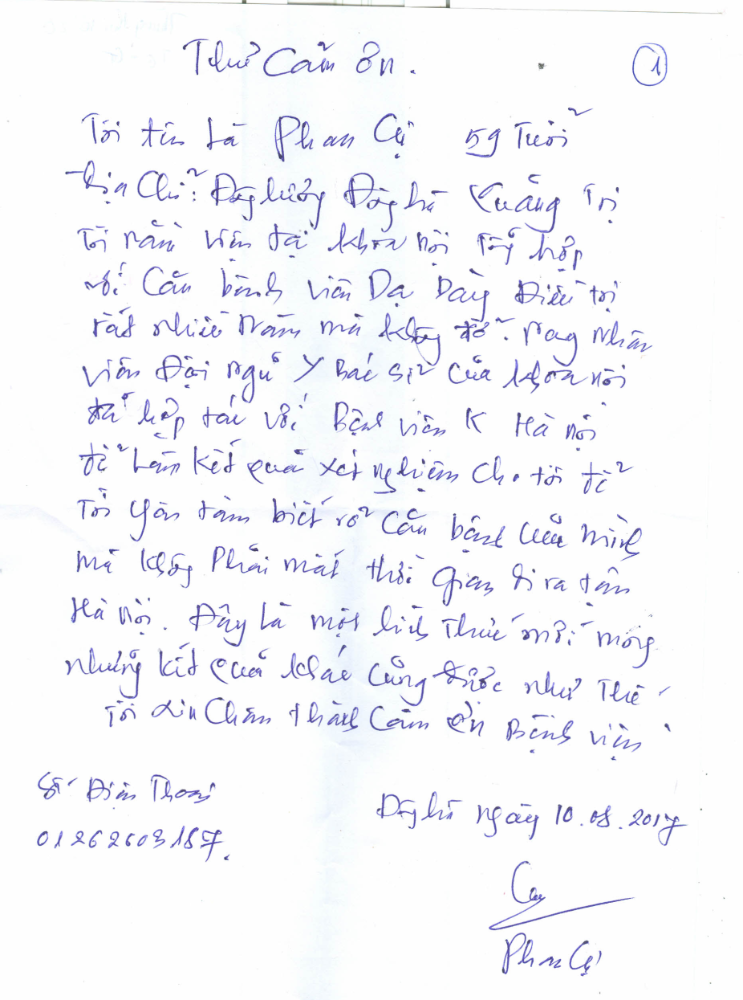 Thư Cảm ơn.
1
Tôi tên là Phan Cự 59 Tuổi
Địa Chỉ: Đông Lương Đông hà Quảng Trị
Tôi nằm viện tại khoa nội Tổng hợp
với Căn bệnh viêm Dạ Dày Điều trị
rất nhiều năm mà không đỡ. Nay nhân
viên Đội ngũ Y Bác sĩ của khoa nội
đã hợp tác với Bệnh viện K Hà nội
để làm kết quả xét nghiệm cho tôi để
Tôi yên tâm biết rõ Căn bệnh của mình
mà không Phải mất thời gian đi ra tận
Hà nội. Đây là một hình Thức mới mong
những kết quả khác cũng được như Thế
Tôi Xin Chân thành Cảm ơn Bệnh viện
Số Điện Thoại
01262603187.
Đông hà ngày 10.08.2017
Phan Cự